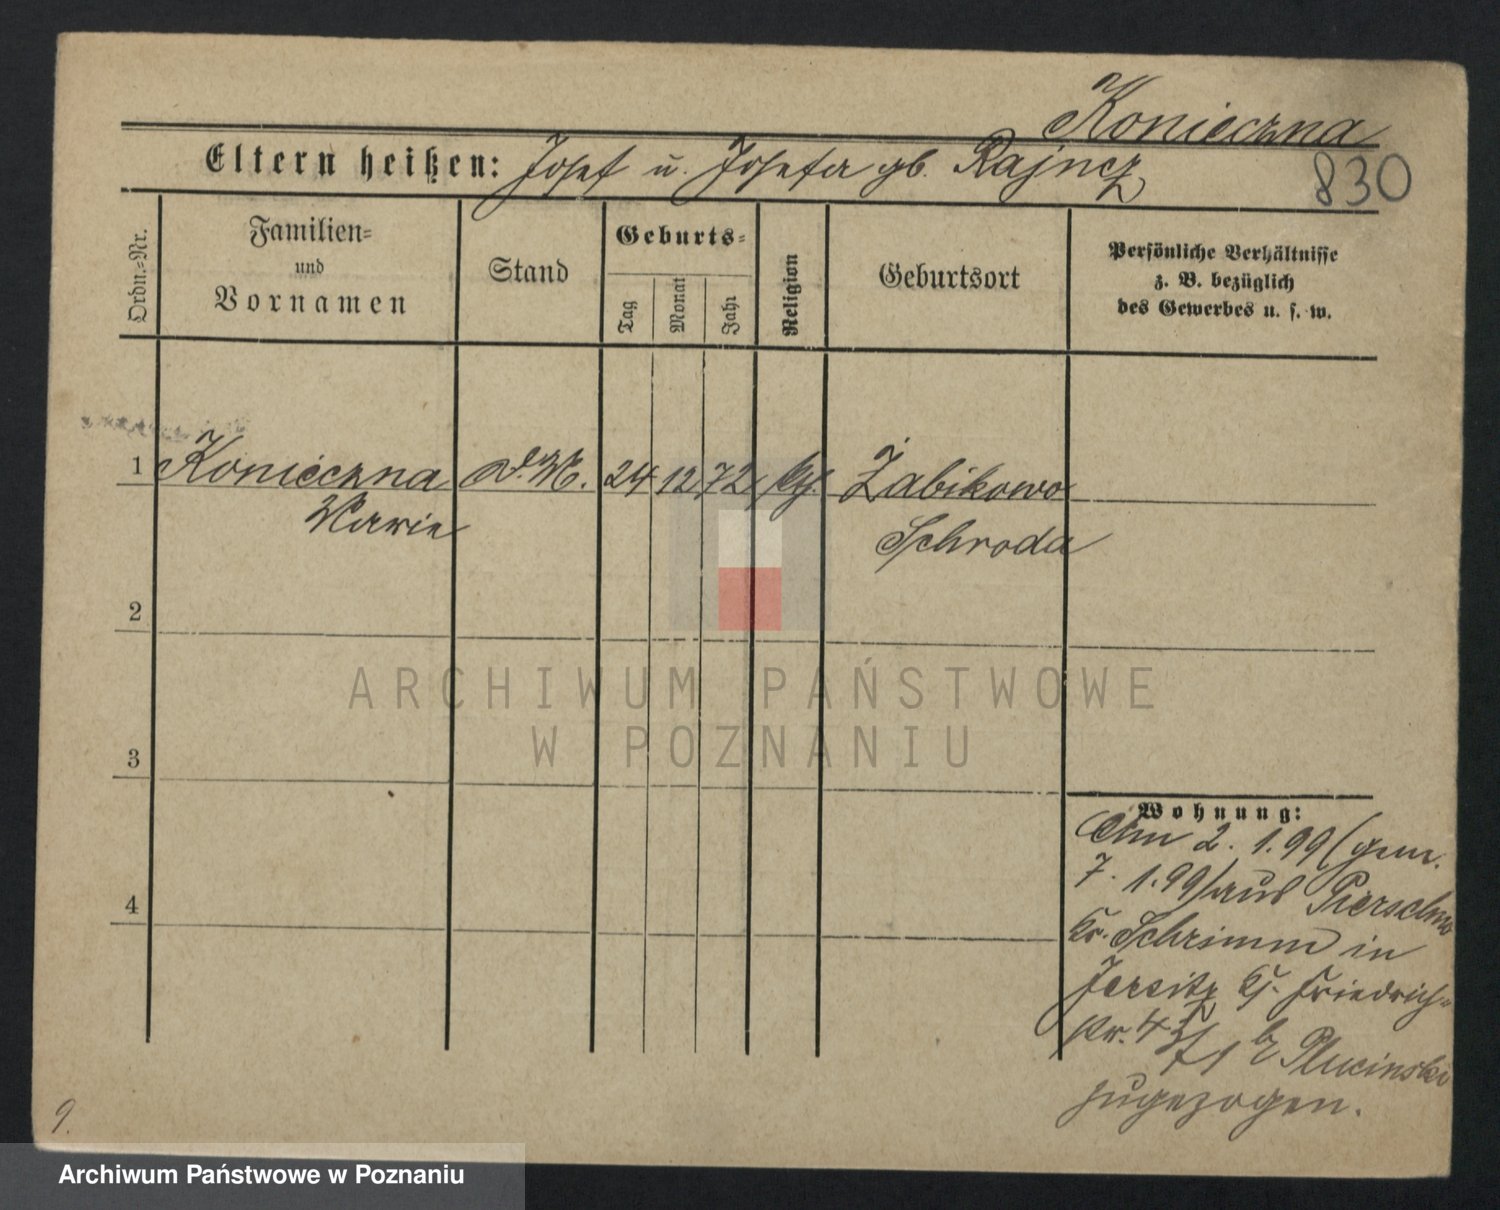 Konieczna
Eltern heißen: Josef u. Josefa gb. Rajncz
830
Ordn.-Nr.
Familien-
und
Vornamen
Stand
Geburts-
Tag
Monat
Jahr
Religion
Geburtsort
Persönliche Verhältnisse
z. B. bezüglich
des Gewerbes u. s. w.
1 Konieczna D.M. 24 12 72 kth. Żabikowo
Marie Schroda
2
3
4
Wohnung:
Am 2. 1. 99 (gem.
7. 1. 99) aus Pierschno
Kr. Schrimm in
Jersitz Friedrich-
Str. 4 b/ Plucinski
zugezogen.
9.
ARCHIWUM PAŃSTWOWE
W POZNANIU
Archiwum Państwowe w Poznaniu